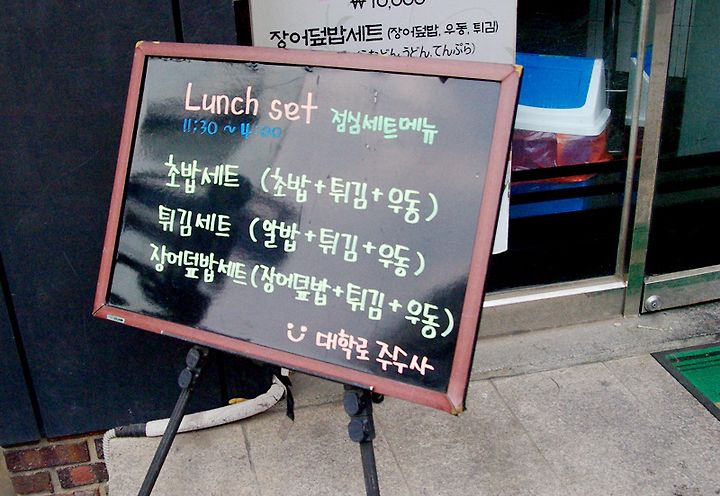 ₩10,000
장어덮밥세트 (장어덮밥, 우동, 튀김)
うどん, てんぷら)
Lunch set 점심세트메뉴
11:30 ~ 4:00
초밥세트 (초밥+튀김+우동)
튀김세트 (알밥+튀김+우동)
장어덮밥세트(장어덮밥+튀김+우동)
대학로 주수사